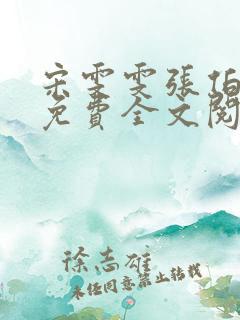 宋雯雯張伯
免費全文閱
徐志雄
未经同意禁止转载